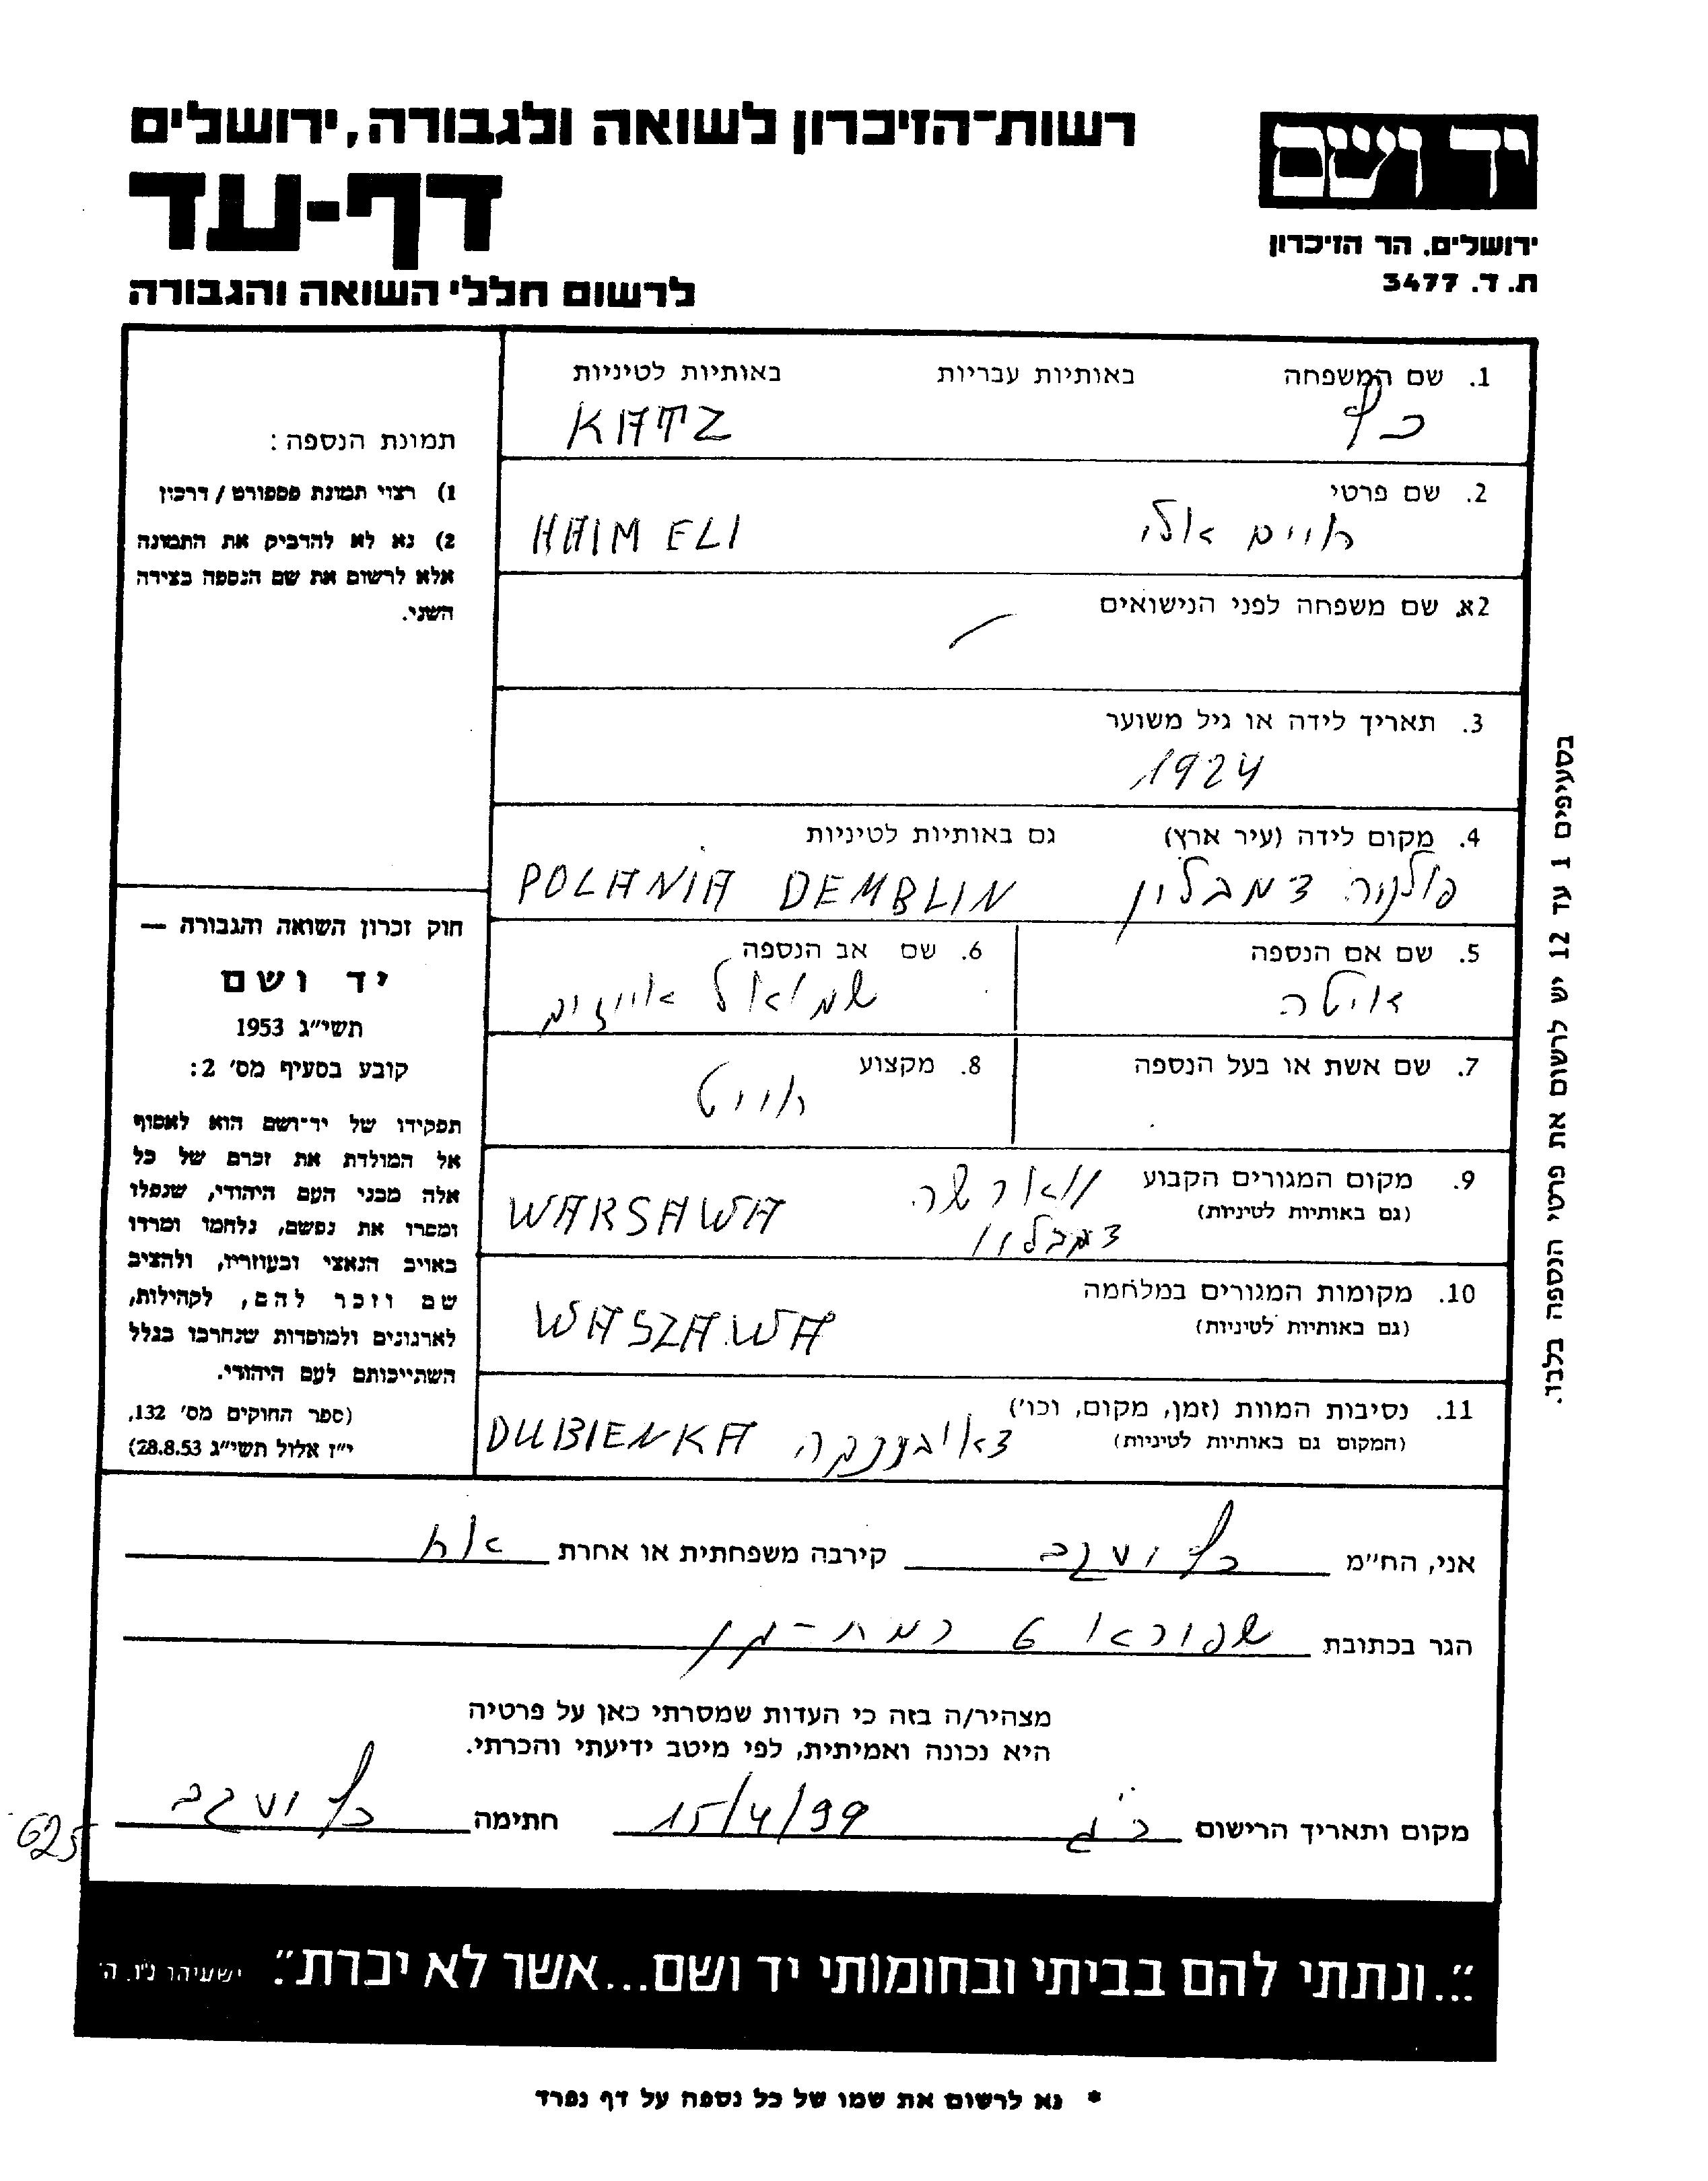 יד ושם
ירושלים. הר הזיכרון
ת. ד. 3477
רשות-הזיכרון לשואה ולגבורה, ירושלים
דף-עד
לרשום חללי השואה והגבורה
1. שם המשפחה באותיות עבריות באותיות לטיניות
כץ KATZ
2. שם פרטי
חיים אלי HAIM ELI
2א. שם משפחה לפני הנישואים
3. תאריך לידה או גיל משוער
1924
4. מקום לידה (עיר ארץ) גם באותיות לטיניות
דמבלין POLANIA DEMBLIN
5. שם אם הנספה 6. שם אב הנספה
שמואל
7. שם אשת או בעל הנספה 8. מקצוע
חייט
9. מקום המגורים הקבוע
(גם באותיות לטיניות)
ווארשה WARSAWA
דמבלין
10. מקומות המגורים במלחמה
(גם באותיות לטיניות)
WASZAWA
11. נסיבות המוות (זמן, מקום, וכו')
(המקום גם באותיות לטיניות)
DUBIENKA
תמונת הנספה:
1) רצוי תמונת פספורט / דרכון
2) נא לא להדביק את התמונה
אלא לרשום את שם הנספה בצידה
השני.
חוק זכרון השואה והגבורה —
יד ושם
תשי״ג 1953
קובע בסעיף מס׳ 2:
תפקידו של יד־ושם הוא לאסוף
אל המולדת את זכרם של כל
אלה מבני העם היהודי, שנפלו
ומסרו את נפשם, נלחמו ומרדו
באויב הנאצי ובעוזריו, ולהציב
שם וזכר להם, לקהילות,
לארגונים ולמוסדות שנחרבו בגלל
השתייכותם לעם היהודי.
(ספר החוקים מס׳ 132,
י״ז אלול תשי״ג 28.8.53)
בסעיפים 1 עד 12 יש לרשום את פרטי הנספה בלבד.
אני, הח״מ כץ קירבה משפחתית או אחרת אח
הגר בכתובת 6 רמת-גן
מצהיר/ה בזה כי העדות שמסרתי כאן על פרטיה
היא נכונה ואמיתית, לפי מיטב ידיעתי והכרתי.
מקום ותאריך הרישום ר״ג 15/4/99 חתימה כץ
625
״...ונתתי להם בביתי ובחומותי יד ושם...אשר לא יכרת״. ישעיהו נ״ו. ה׳
* נא לרשום את שמו של כל נספה על דף נפרד